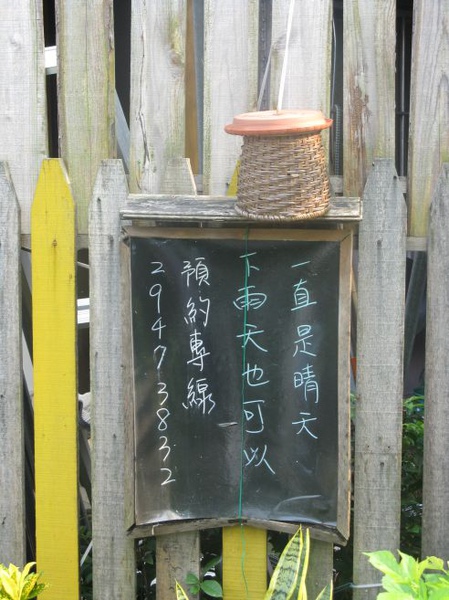 一直是晴天
下雨天也可以
預約專線
29473832